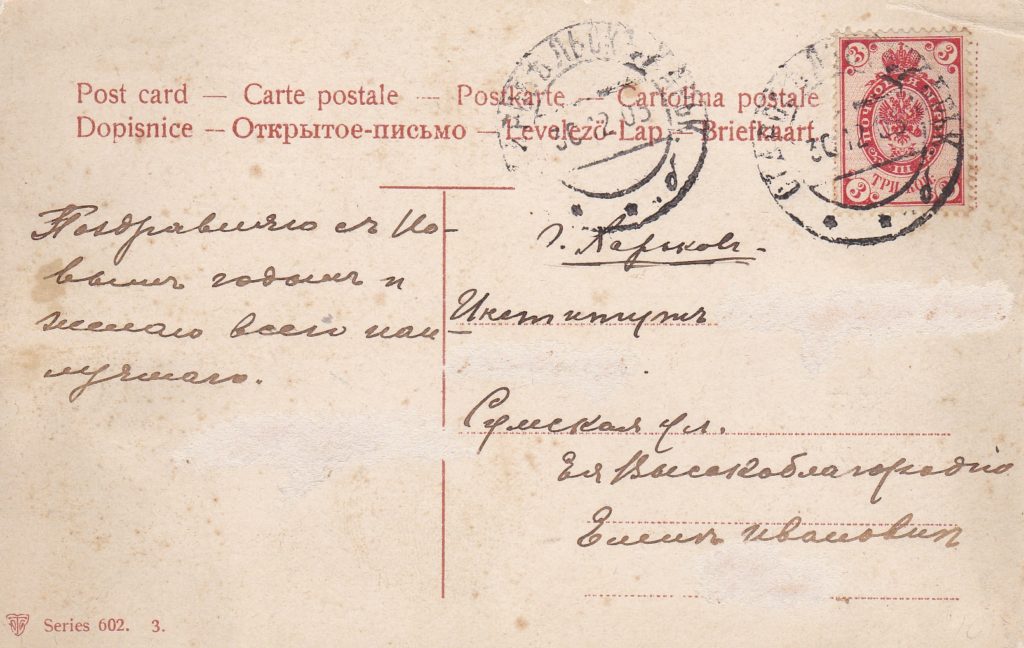 Post card — Carte postale — Postkarte — Cartolina postale
Dopisnice — Открытое-письмо — Levelező-Lap — Briefkaart
3 3
30 12 05
30 12
б
б
3 ТРИ КОП. 3
Поздравляю съ Но-
вымъ годомъ и
желаю всего наи-
лучшаго.
г. Харьковъ.
Институтъ
Сумская ул.
Ея Высокоблагородію
Еленѣ Ивановнѣ
Series 602. 3.